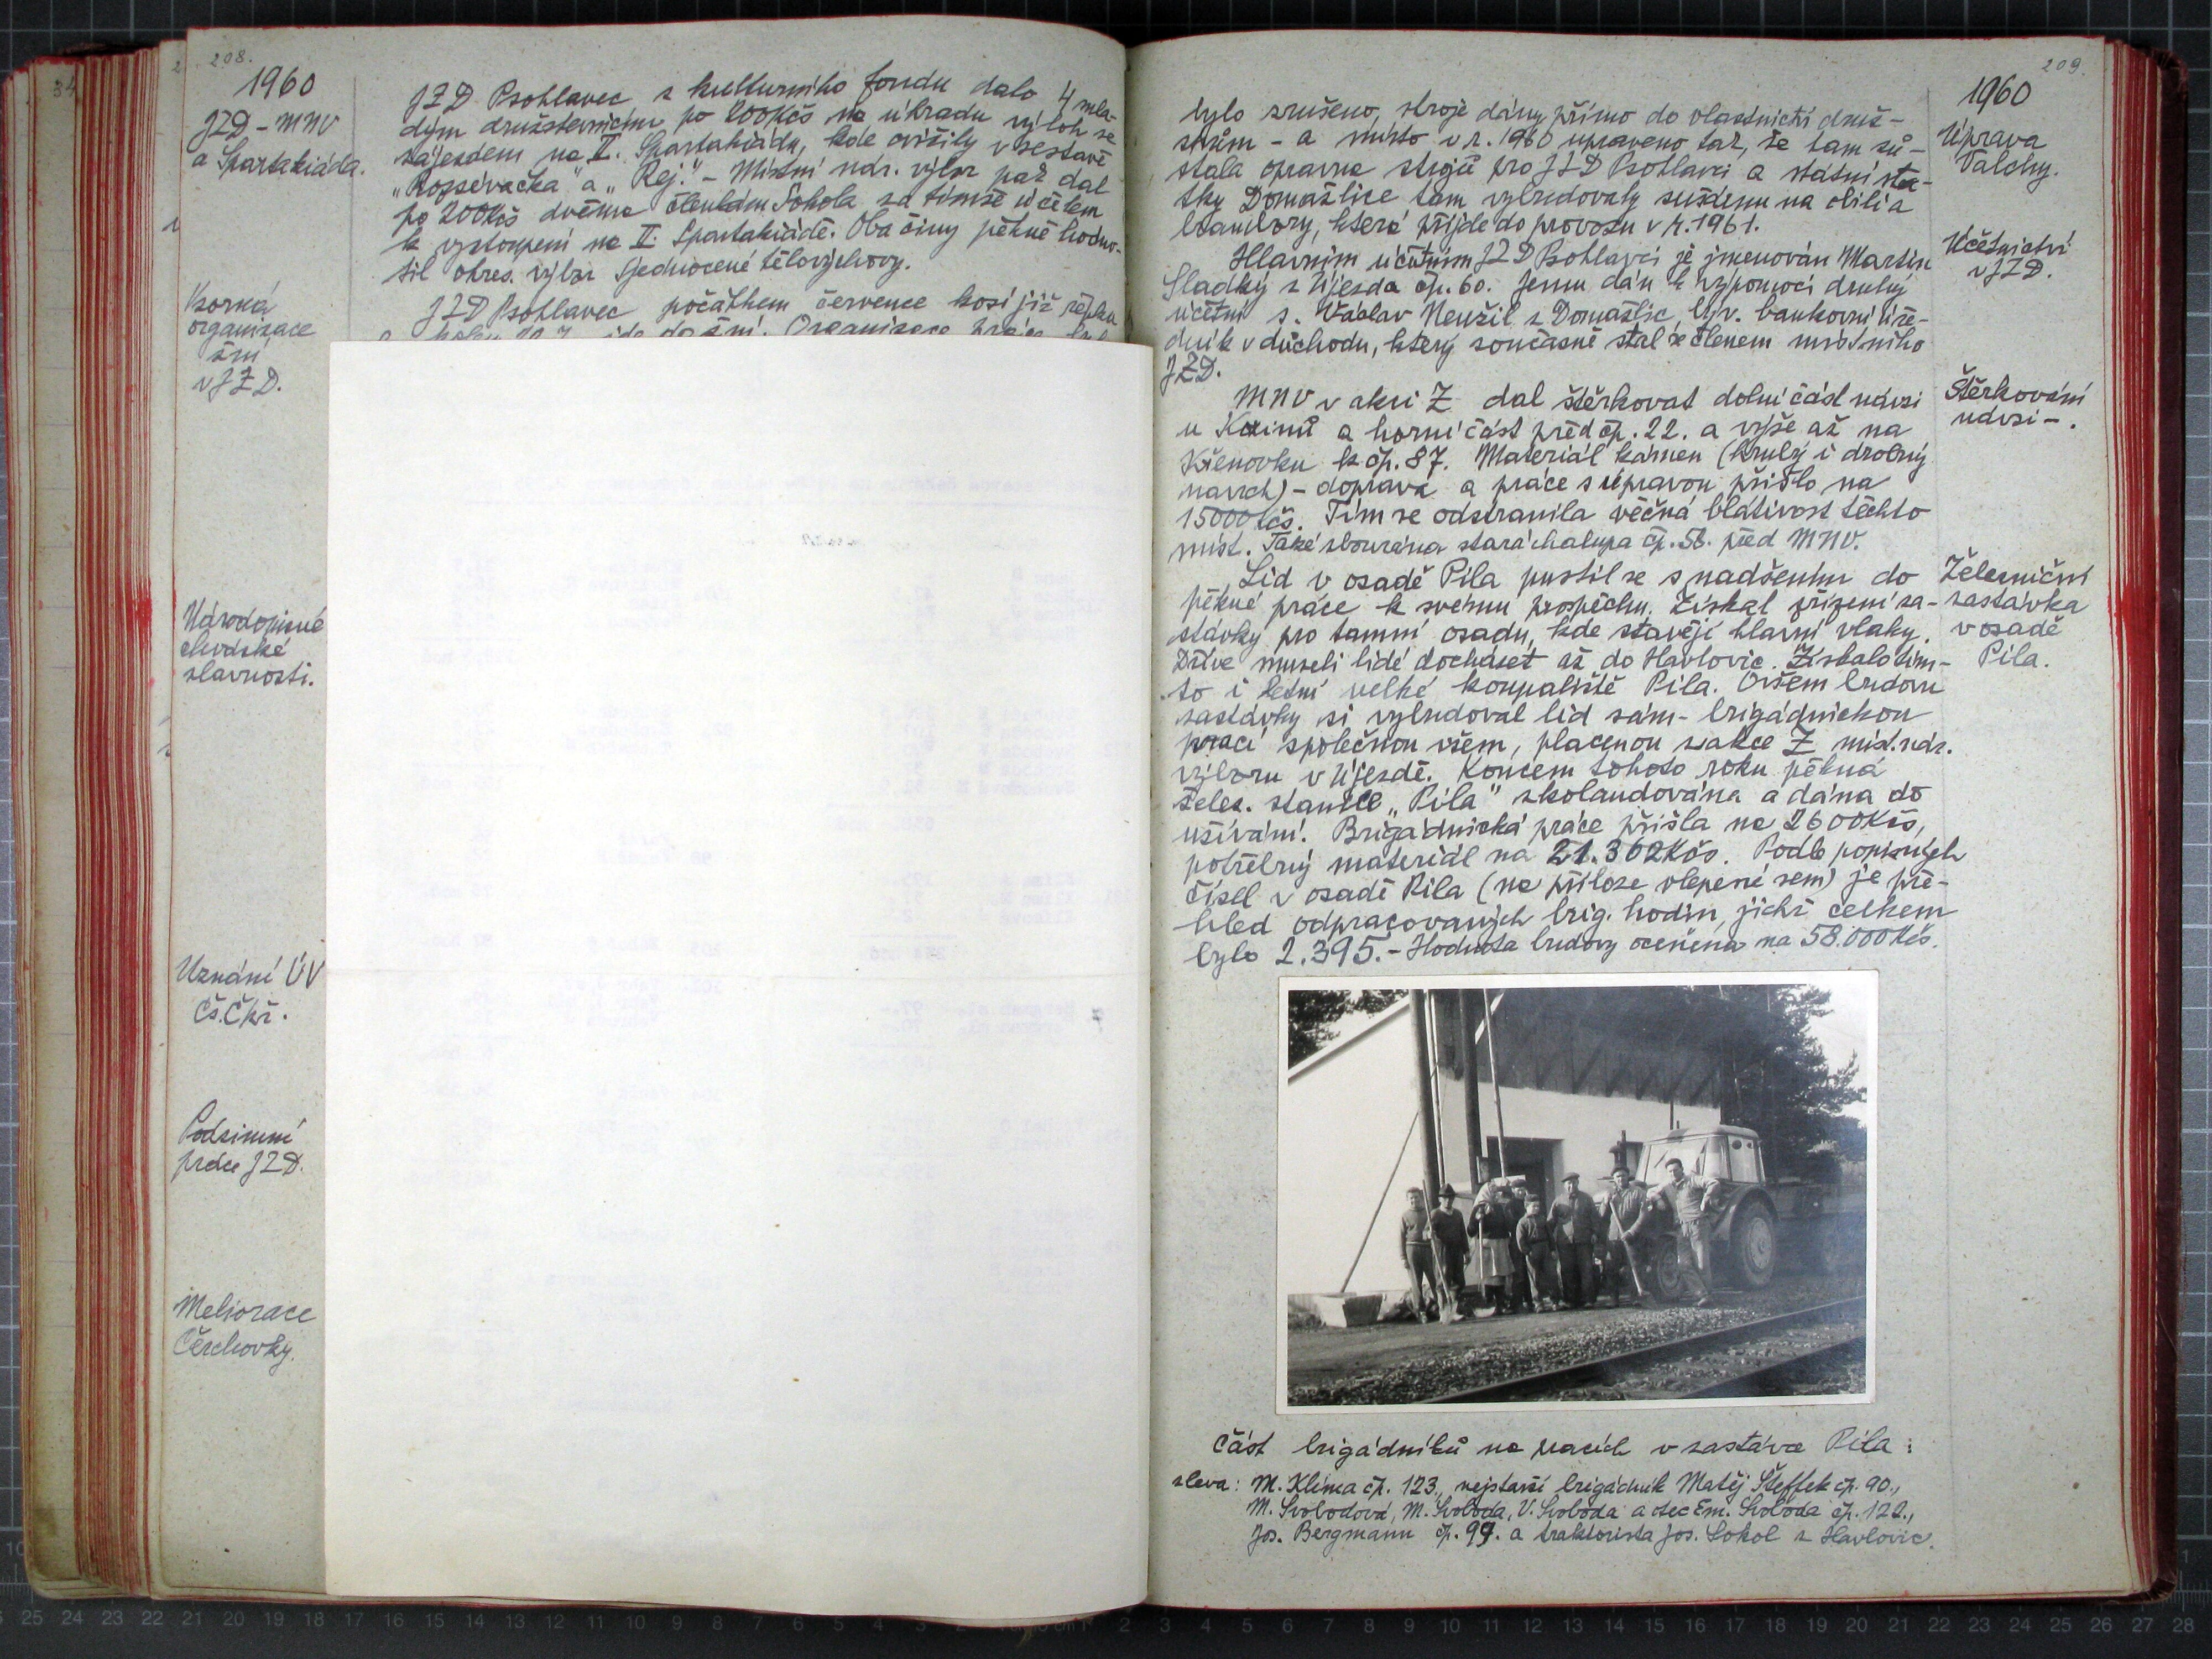 208.
1960
JZD - MNV
a Spartakiáda.
JZD Psohlavec z kulturního fondu dalo 4 mla-
dým družstevnicím po 200 Kčs na úhradu výloh se
zájezdem na II. Spartakiádu, kde cvičily v sestavě
"Rozsévačka" a "Rej." - Místní nár. výbor pak dal
po 200 Kčs dvěma členkám Sokola za tímže účelem
k vystoupení na II. Spartakiádě. Oba činy pěkně hodno-
til okres. výbor Sjednocené tělovýchovy.
Vzorná
organisace
žní
v JZD.
JZD Psohlavec počátkem července kosí již řepku
Národopisné
chodské
slavnosti.
Uznání ÚV
Čs.Čkř.
Podzimní
práce JZD.
Meliorace
Čerchovky.
209.
1960
Úprava
Valchy.
bylo zrušeno, stroje dány přímo do vlastnictví druž-
stvům - a místo v r. 1960 upraveno tak, že tam zů-
stala opravna strojů pro JZD Psohlavci a státní stat-
ky Domažlice tam vybudovaly sušárnu na obilí a
brambory, která přijde do provozu v r. 1961.
Účetnictví
v JZD.
Hlavním účetním JZD Psohlavci je jmenován Martin
Sladký z Újezda čp. 60. Jemu dán k výpomoci druhý
účetní s. Václav Neužil z Domažlic, býv. bankovní úře-
dník v důchodu, který současně stal se členem místního
JZD.
Štěrkování
návsi -.
MNV v akci Z dal štěrkovat dolní část návsi
u Kainů a horní část před čp. 22. a výše až na
Křenovku k čp. 87. Materiál kámen (hrubý i drobný
navrch) - doprava a práce s úpravou přišlo na
15000 Kčs. Tím se odstranila věčná blátivost těchto
míst. Také zbourána stará chalupa čp. 56. před MNV.
Železniční
zastávka
v osadě
Pila.
Lid v osadě Pila pustil se s nadšením do
pěkné práce k svému prospěchu. Získal zřízení za-
stávky pro tamní osadu, kde stavějí hlavní vlaky.
Dříve museli lidé docházet až do Havlovic. Získalo tím-
to i letní velké koupaliště Pila. Ovšem budovu
zastávky si vybudoval lid sám - brigádnickou
prací společnou všem, placenou z akce Z míst. nár.
výboru v Újezdě. Koncem tohoto roku pěkná
želez. stanice "Pila" zkolaudována a dána do
užívání. Brigádnická práce přišla na 2600 Kčs,
potřebný materiál na 21.302 Kčs. Podle popisných
čísel v osadě Pila (na příloze vlepené sem) je pře-
hled odpracovaných brig. hodin, jichž celkem
bylo 2.395. - Hodnota budovy oceněna na 58.000 Kčs.
Část brigádníků na pracích v zastávce Pila:
zleva: M. Klíma čp. 123, nejstarší brigádník Matěj Šteffek čp. 90.,
M. Svobodová, M. Svoboda, V. Svoboda a otec Em. Svoboda čp. 122.,
Jos. Bergmann čp. 99. a traktorista Jos. Sokol z Havlovic.